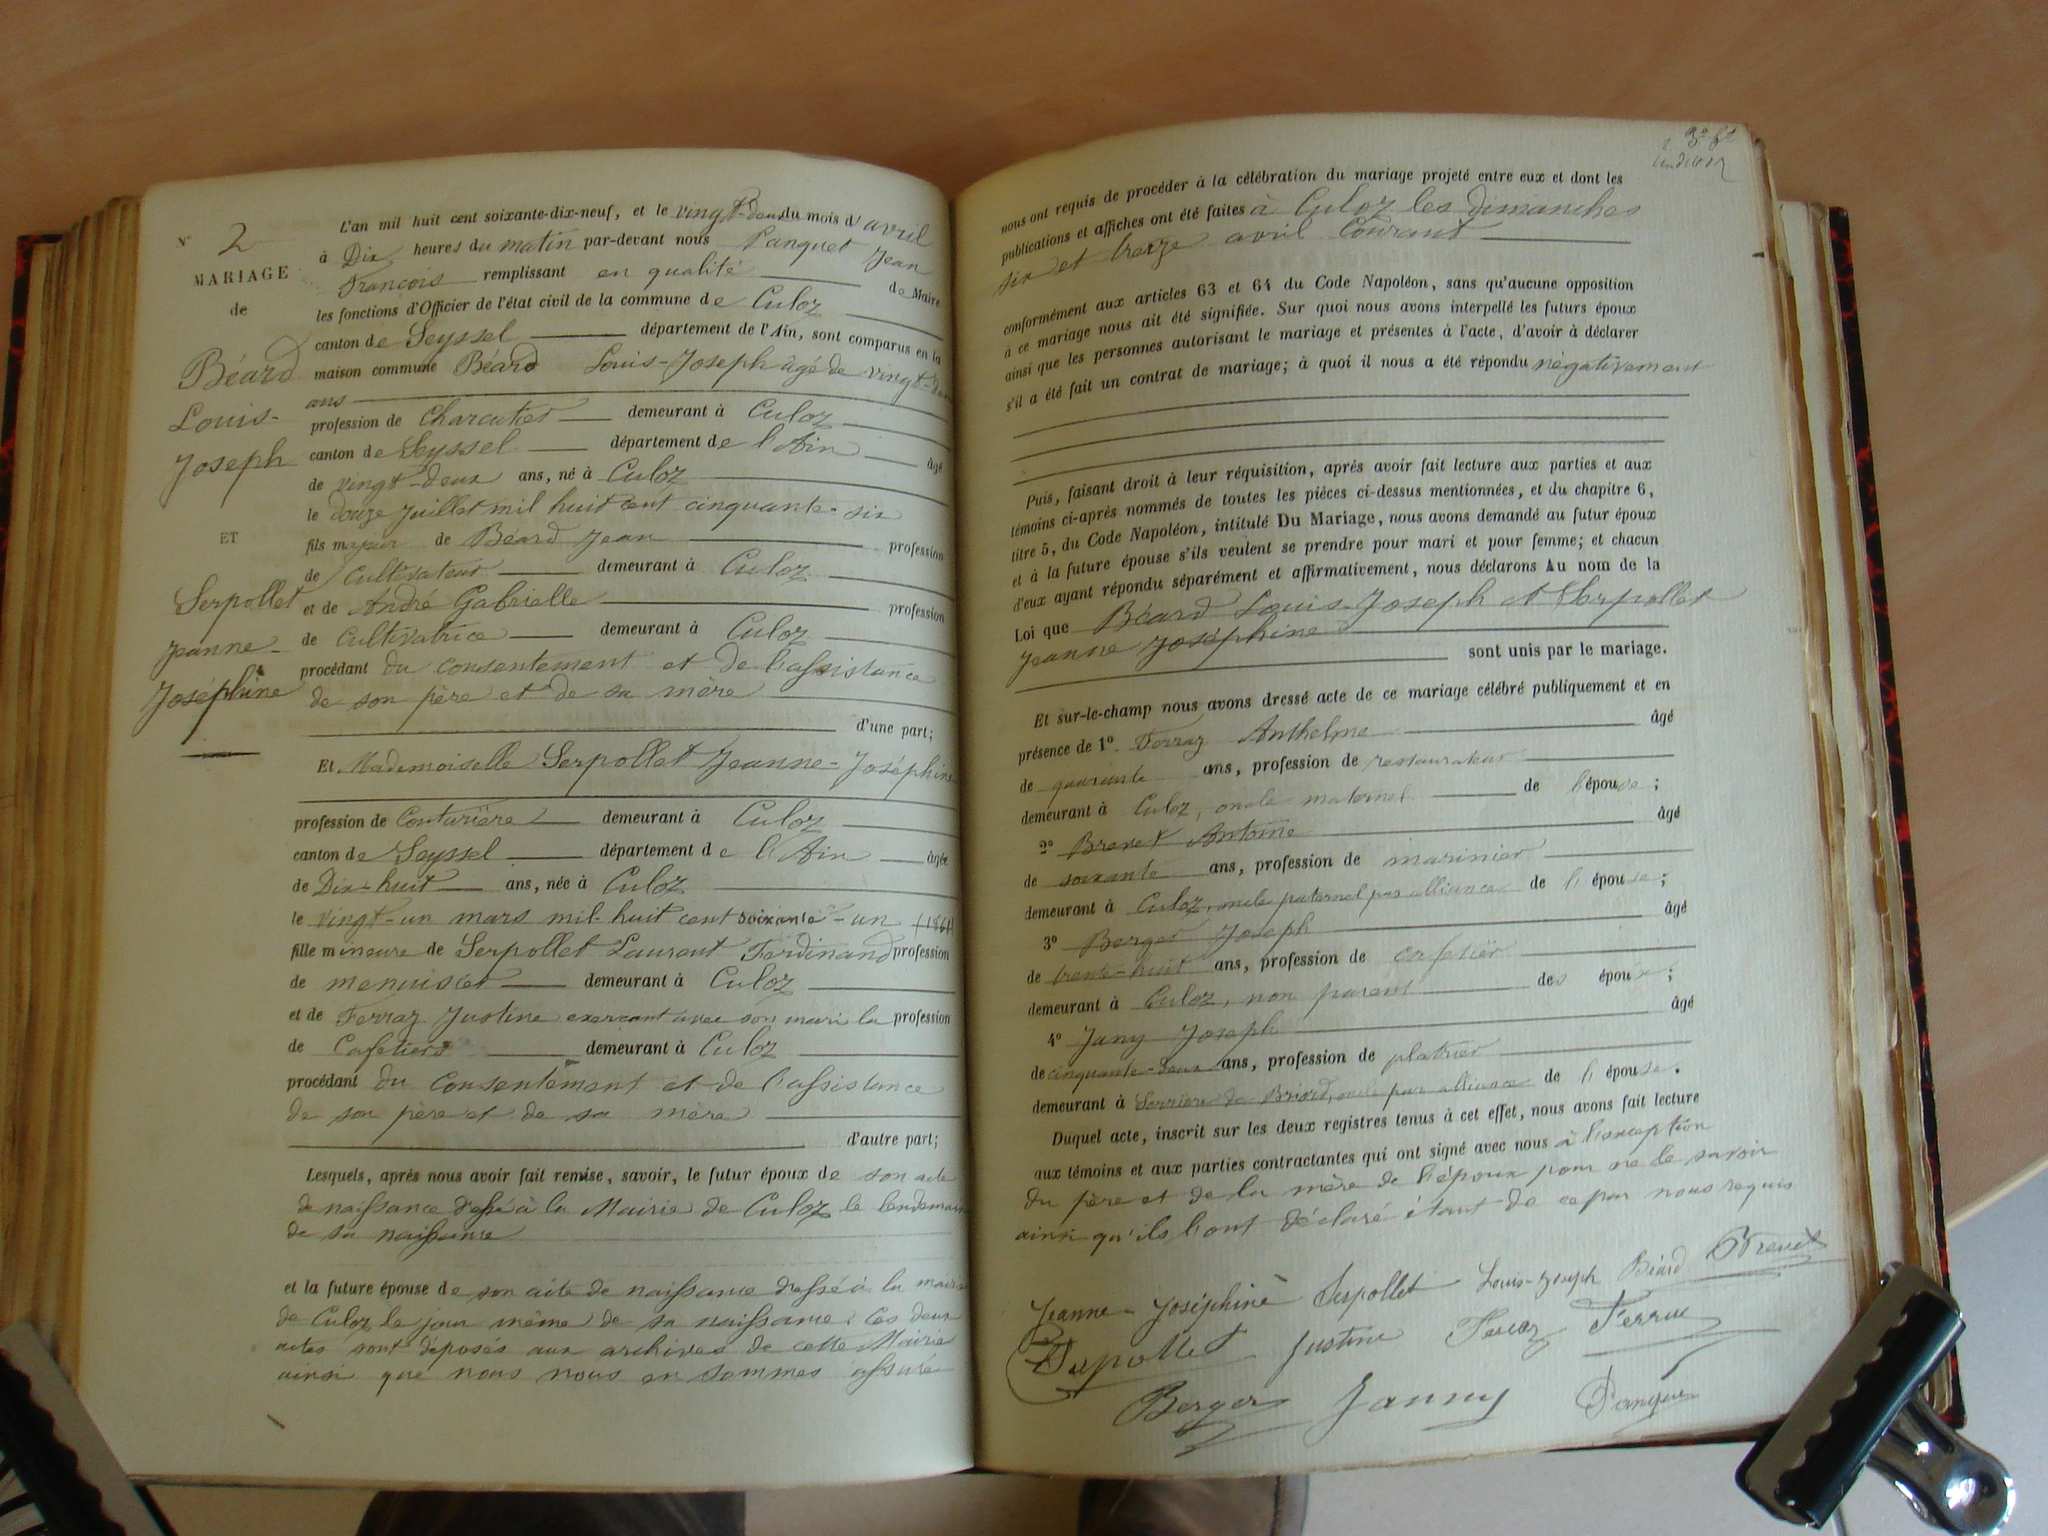 N° 2
MARIAGE
de
Béard
Louis-
Joseph
ET
Serpollet
Jeanne-
Joséphine
L'an mil huit cent soixante-dix-neuf, et le vingt-deux du mois d'avril
à Dix heures du matin par-devant nous Panguet Jean
François remplissant en qualité de Maire
les fonctions d'Officier de l'état civil de la commune de Culoz
canton de Seyssel département de l'Ain, sont comparus en la
maison commune Béard Louis-Joseph âgé de vingt-deux
ans
profession de charcutier demeurant à Culoz
canton de Seyssel département de l'Ain âgé
de vingt-deux ans, né à Culoz
le douze juillet mil huit cent cinquante-six
fils majeur de Béard Jean profession
de cultivateur demeurant à Culoz
et de André Gabrielle profession
de cultivatrice demeurant à Culoz
procédant du consentement et de l'assistance
de son père et de sa mère
d'une part;
Et Mademoiselle Serpollet Jeanne-Joséphine
profession de Couturière demeurant à Culoz
canton de Seyssel département de l'Ain âgée
de Dix-huit ans, née à Culoz
le vingt-un mars mil-huit cent soixante-un (1861)
fille mineure de Serpollet Laurent Ferdinand profession
de menuisier demeurant à Culoz
et de Ferraz Justine exerçant avec son mari la profession
de Cafetiers demeurant à Culoz
procédant du consentement et de l'assistance
de son père et de sa mère
d'autre part;
Lesquels, après nous avoir fait remise, savoir, le futur époux de son acte
de naissance dressé à la Mairie de Culoz le lendemain
de sa naissance
et la future épouse de son acte de naissance dressé à la mairie
de Culoz le jour même de sa naissance. Ces deux
actes sont déposés aux archives de cette Mairie
ainsi que nous nous en sommes assuré
nous ont requis de procéder à la célébration du mariage projeté entre eux et dont les
publications et affiches ont été faites à Culoz les dimanches
six et treize avril Courant
conformément aux articles 63 et 64 du Code Napoléon, sans qu'aucune opposition
à ce mariage nous ait été signifiée. Sur quoi nous avons interpellé les futurs époux
ainsi que les personnes autorisant le mariage et présentes à l'acte, d'avoir à déclarer
s'il a été fait un contrat de mariage; à quoi il nous a été répondu négativement
Puis, faisant droit à leur réquisition, après avoir fait lecture aux parties et aux
témoins ci-après nommés de toutes les pièces ci-dessus mentionnées, et du chapitre 6,
titre 5, du Code Napoléon, intitulé Du Mariage, nous avons demandé au futur époux
et à la future épouse s'ils veulent se prendre pour mari et pour femme; et chacun
d'eux ayant répondu séparément et affirmativement, nous déclarons Au nom de la
Loi que Béard Louis-Joseph et Serpollet
Jeanne Joséphine
sont unis par le mariage.
Et sur-le-champ nous avons dressé acte de ce mariage célébré publiquement et en
présence de 1° Ferraz Anthelme âgé
de quarante ans, profession de restaurateur
demeurant à Culoz, oncle maternel de l'épouse;
2° Brevet Antoine âgé
de soixante ans, profession de marinier
demeurant à Culoz, oncle paternel par alliance de l'épouse;
3° Berger Joseph âgé
de trente-huit ans, profession de cafetier
demeurant à Culoz, non parent des époux;
4° Jany Joseph âgé
de cinquante-deux ans, profession de platrier
demeurant à Serrière de Briord, oncle par alliance de l'épouse.
Duquel acte, inscrit sur les deux registres tenus à cet effet, nous avons fait lecture
aux témoins et aux parties contractantes qui ont signé avec nous à l'exception
du père et de la mère de l'époux pour ne le savoir
ainsi qu'ils l'ont déclaré étant de ce par nous requis
Jeanne-Joséphine Serpollet Louis-Joseph Béard Brevet
Serpollet Justine Ferraz
Berger Janny Panguet